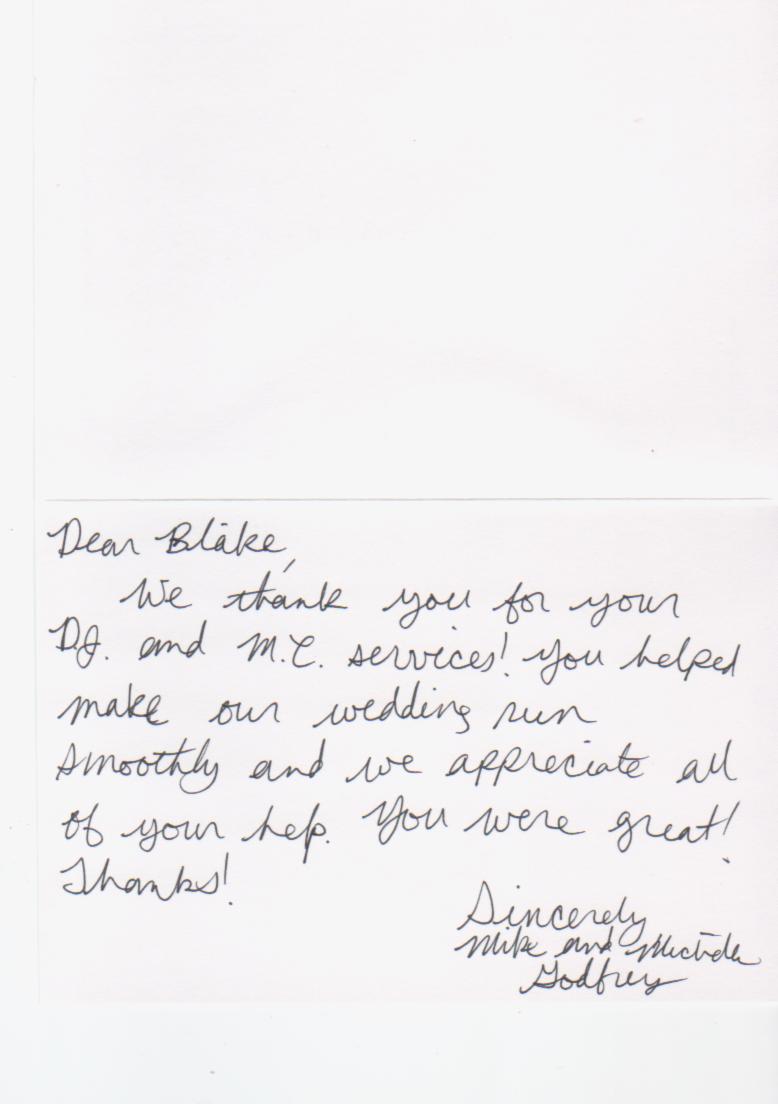 Dear Blake,
We thank you for your
D.J. and M.C. services! You helped
make our wedding run
smoothly and we appreciate all
of your help. You were great!
Thanks!
Sincerely
Mike and
Godfrey